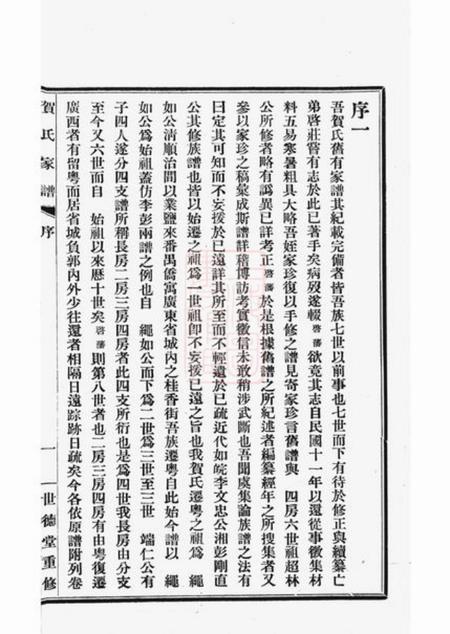 序一
吾賀氏舊有家譜其紀載完備者皆吾族七世以前事也七世而下有待於修正與續纂亡
弟啓莊嘗有志於此已著手矣病歿遂輟啓藩欲竟其志自民國十一年以還從事徵集材
料五易寒暑粗具大略吾姪家珍復以手修之譜見寄家珍言舊譜與 四房六世祖超林
公所修者略有譌異已詳考正啓藩於是根據舊譜之所紀述者編纂經年之所搜集者又
參以家珍之稿彙成斯譜詳稽博訪考實徵信未敢稍涉武斷也吾聞處集論族譜之法有
曰定其可知而不妄援於已遠詳其所至而不輕遺於已疏近代如皖李文忠公湘彭剛直
公其修族譜也皆以始遷之祖爲一世祖卽不妄援已遠之旨也我賀氏遷粵之祖爲 繩
如公淸順治間以業鹽來番禺僑寓廣東省城內之桂香街吾族遷粵自此始今譜以 繩
如公爲始祖蓋仿李彭兩譜之例也自 繩如公而下爲二世爲三世至三世 端仁公有
子四人遂分四支譜所稱長房二房三房四房者此四支所衍也是爲四世我長房由分支
至今又六世而自 始祖以來歷十世矣啓藩則第八世者也二房三房四房有由粵復遷
廣西者有留粵而居省城負郭內外少往還者相隔日遠踪跡日疏矣今各依原譜附列卷
賀氏家譜 序
一
世德堂重修